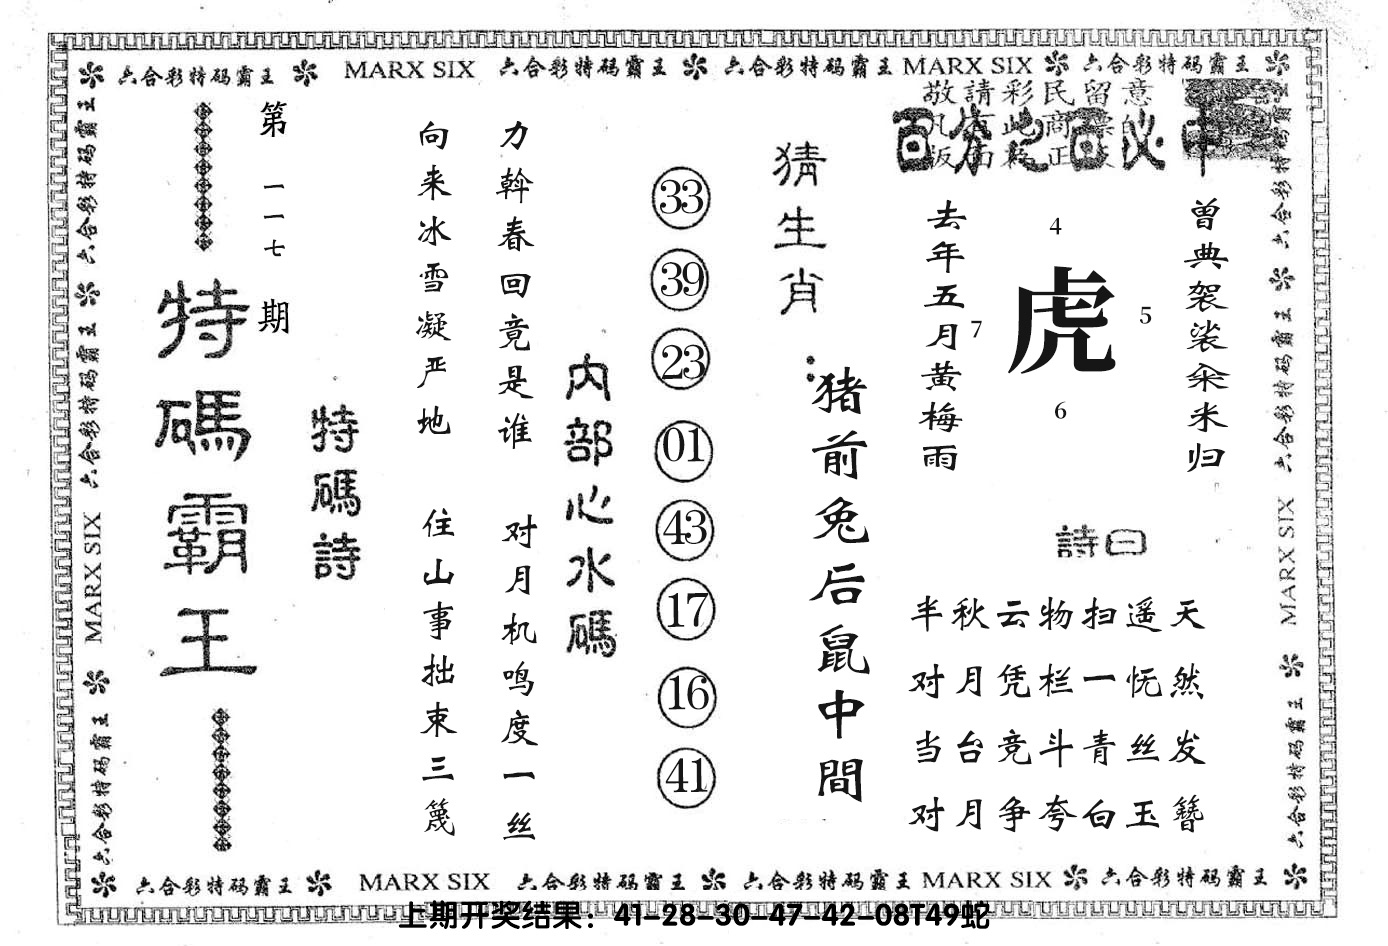 六合彩特码霸王 MARX SIX 六合彩特码霸王 六合彩特码霸王 MARX SIX 六合彩特码霸王
敬請彩民留意
百分之百必中
曾典袈裟籴米归
去年五月黄梅雨
4
虎
7
5
6
詩曰
半秋云物扫遥天
对月凭栏一怃然
当台竞斗青丝发
对月争夸白玉簪
猜生肖：
猪前兔后鼠中間
33
39
23
01
43
17
16
41
内部心水碼
力斡春回竟是谁 对月机鸣度一丝
向来冰雪凝严地 住山事拙束三篾
特碼詩
第一一七期
特碼霸王
六合彩特码霸王 六合彩特码霸王 MARX SIX 六合彩特码霸王
六合彩特码霸王 六合彩特码霸王 MARX SIX 六合彩特码霸王
六合彩特码霸王 MARX SIX 六合彩特码霸王 六合彩特码霸王 MARX SIX 六合彩特码霸王
上期开奖结果：41-28-30-47-42-08T49蛇